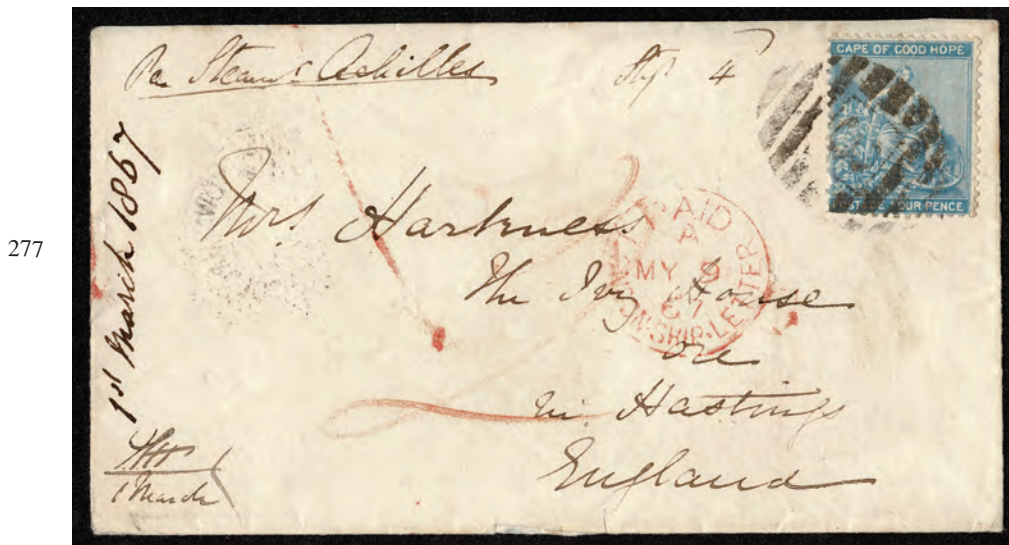 277
Per Steamr Achilles
Stp 4
CAPE OF GOOD HOPE
FOUR PENCE
1st March 1867
Mrs Harkness
The Ivy House
ore
nr. Hastings
England
PAID
A
MY 9
67
LONDON·SHIP·LETTER
1 March